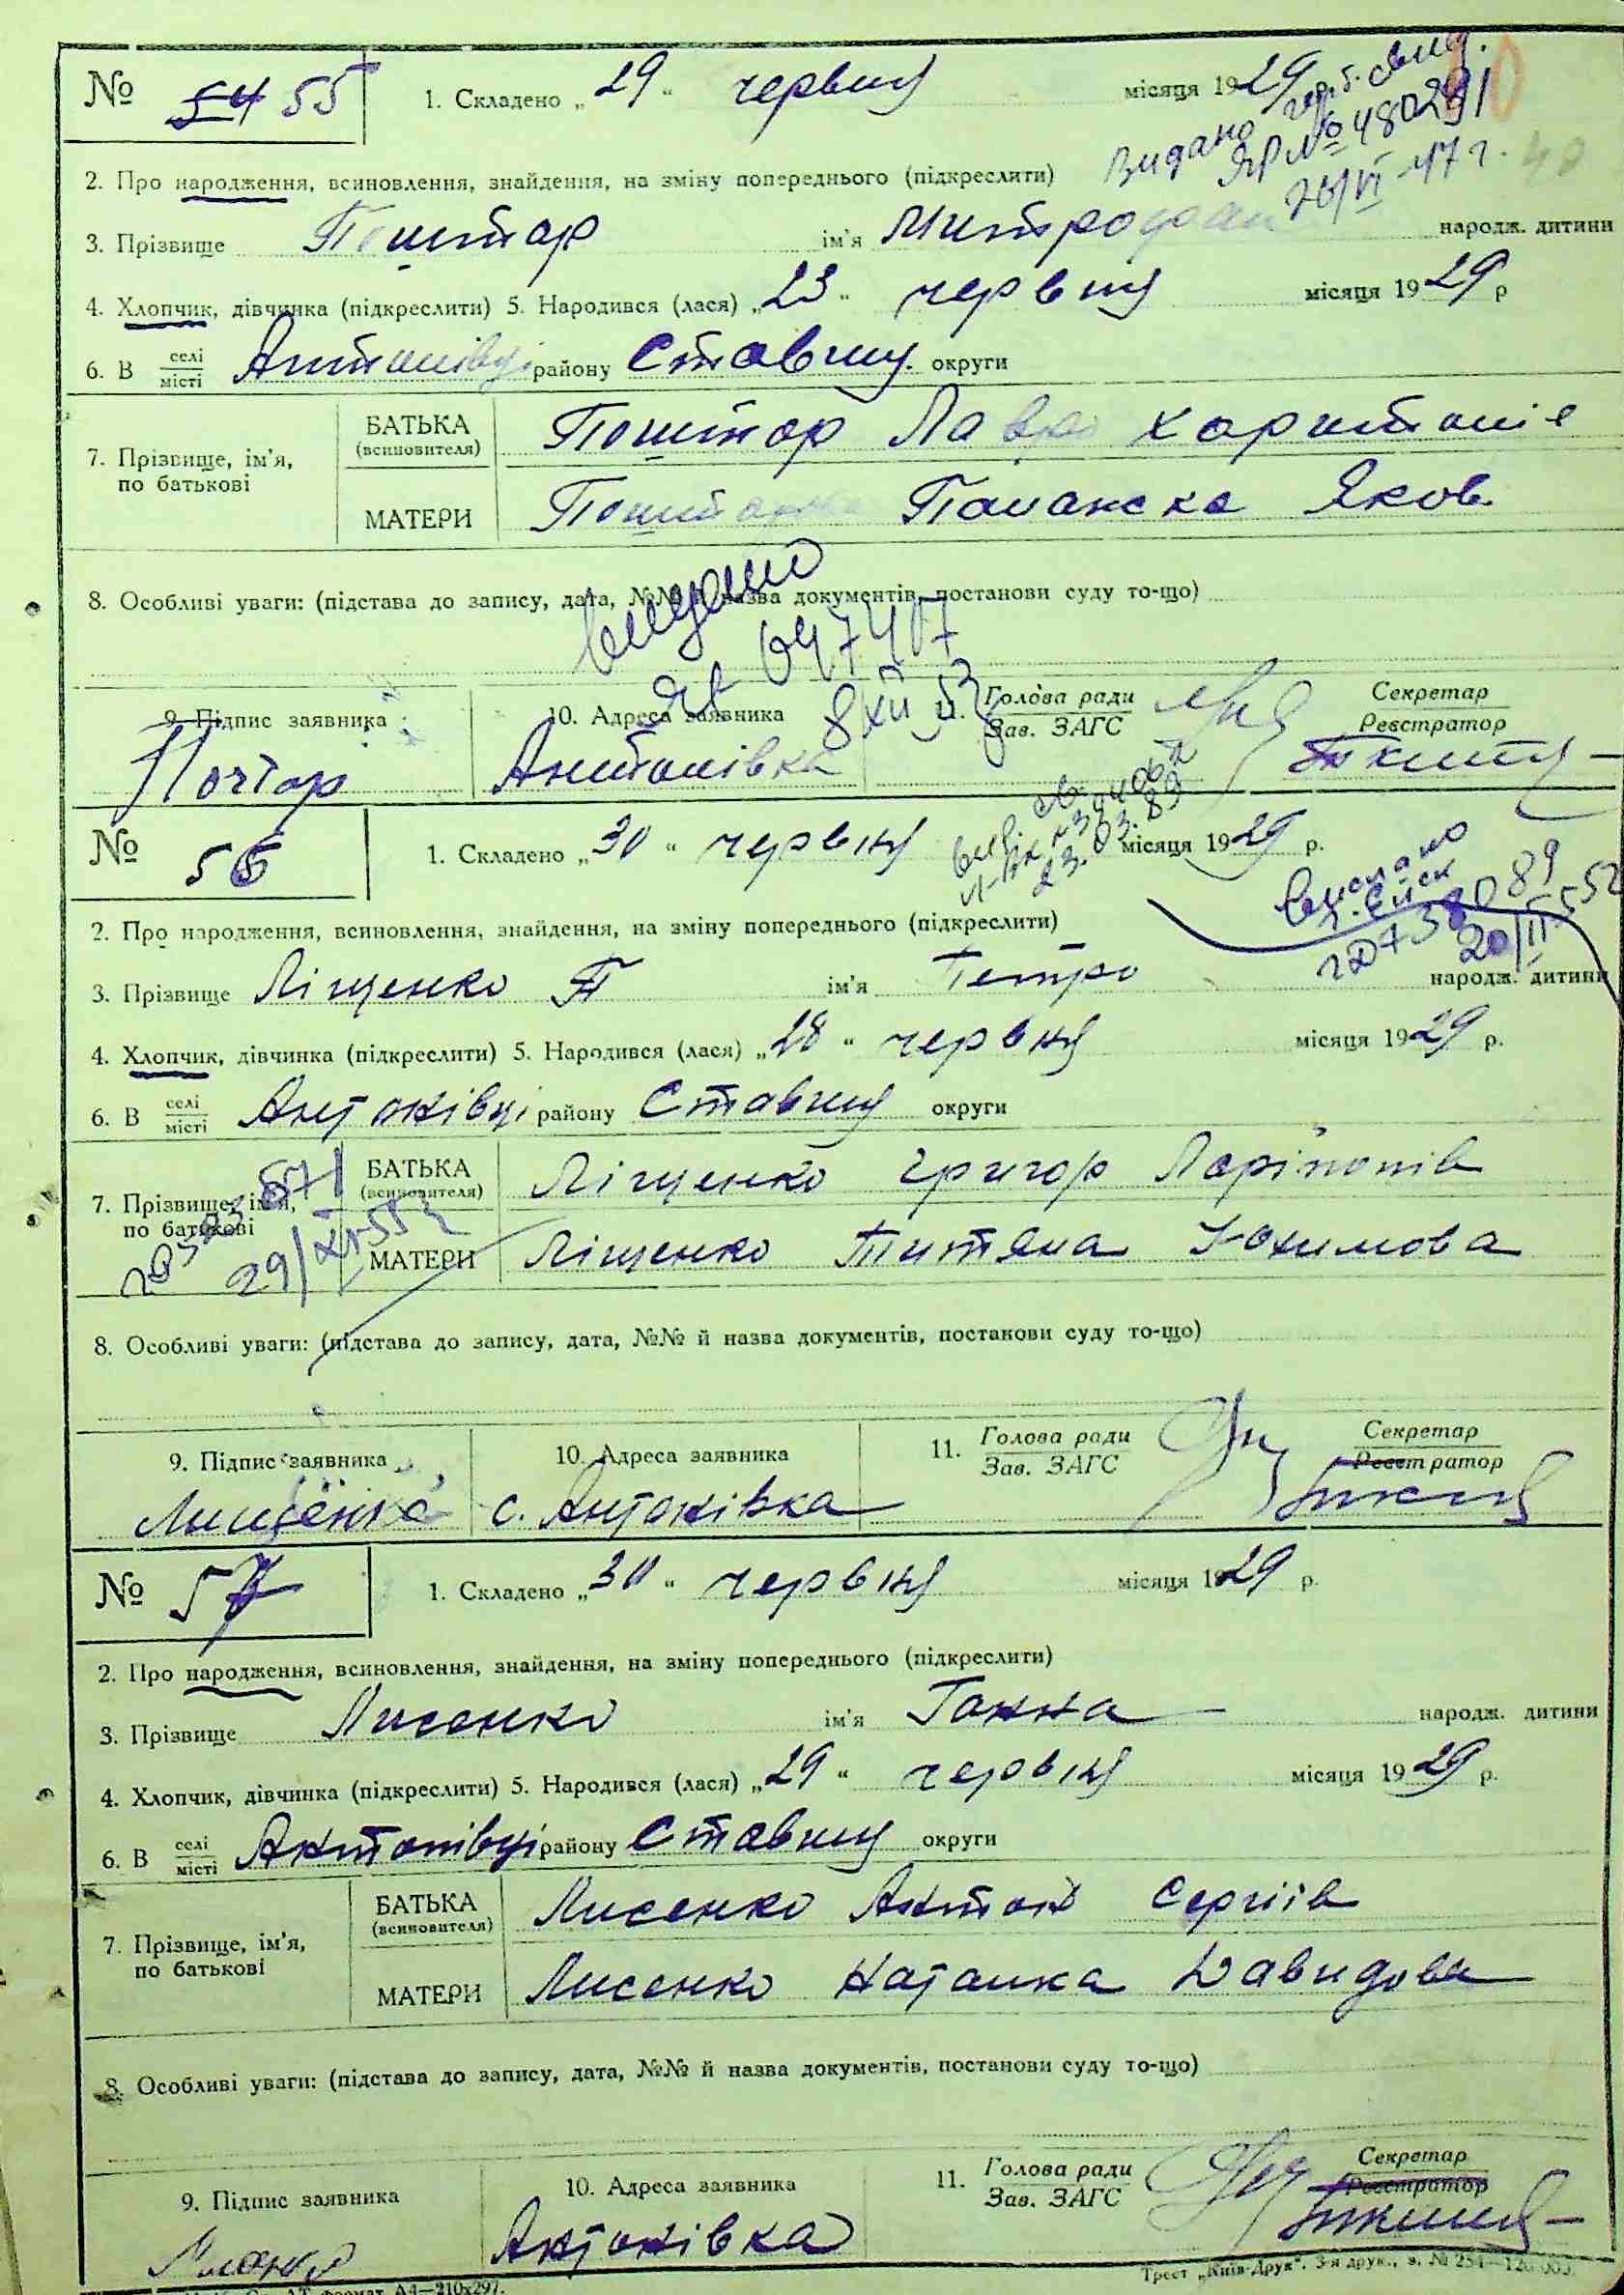 № 54 55 1. Складено „29“ червня місяця 1929
Видано герб. свид.
ЯР № 480291
26/VI 47 г.
40
2. Про народження, всиновлення, знайдення, на зміну попереднього (підкреслити)
3. Прізвище Поштар ім'я Митрофан народж. дитини
4. Хлопчик, дівчинка (підкреслити) 5. Народився (лася) „23“ червня місяця 1929 р
6. В селі/місті Антонівці району Ставищ. округи
7. Прізвище, ім'я, по батькові
БАТЬКА (всиновителя) Поштар Лавро Харитонів
МАТЕРИ Поштарова Параска Яков.
8. Особливі уваги: (підстава до запису, дата, №№ й назва документів, постанови суду то-що)
видано
047407
8 XII
9. Підпис заявника 10. Адреса заявника 11. Голова ради Секретар
Зав. ЗАГС Реєстратор
Почтар Антонівка
№ 56 1. Складено „30“ червня місяця 1929 р.
23.03.89
Выслано
г. Ейск
20/II 552
2. Про народження, всиновлення, знайдення, на зміну попереднього (підкреслити)
3. Прізвище Ліщенко П ім'я Петро народж. дитини
4. Хлопчик, дівчинка (підкреслити) 5. Народився (лася) „28“ червня місяця 1929 р.
6. В селі/місті Антонівці району Ставищ округи
7. Прізвище, ім'я, по батькові
БАТЬКА (всиновителя) Ліщенко Григор Ларіонів
МАТЕРИ Ліщенко Титяна Юхимова
8. Особливі уваги: (підстава до запису, дата, №№ й назва документів, постанови суду то-що)
9. Підпис заявника 10. Адреса заявника 11. Голова ради Секретар
Зав. ЗАГС Реєстратор
Лищенко с. Антонівка
№ 57 1. Складено „30“ червня місяця 1929 р.
2. Про народження, всиновлення, знайдення, на зміну попереднього (підкреслити)
3. Прізвище Лисенко ім'я Ганна народж. дитини
4. Хлопчик, дівчинка (підкреслити) 5. Народився (лася) „29“ червня місяця 1929 р.
6. В селі/місті Антонівці району Ставищ округи
7. Прізвище, ім'я, по батькові
БАТЬКА (всиновителя) Лисенко Антон Сергіїв
МАТЕРИ Лисенко Наталка Давидова
8. Особливі уваги: (підстава до запису, дата, №№ й назва документів, постанови суду то-що)
9. Підпис заявника 10. Адреса заявника 11. Голова ради Секретар
Зав. ЗАГС Реєстратор
Антонівка
формат А4—210х297. Трест „Київ-Друк“. 3-я друк., з. № 254